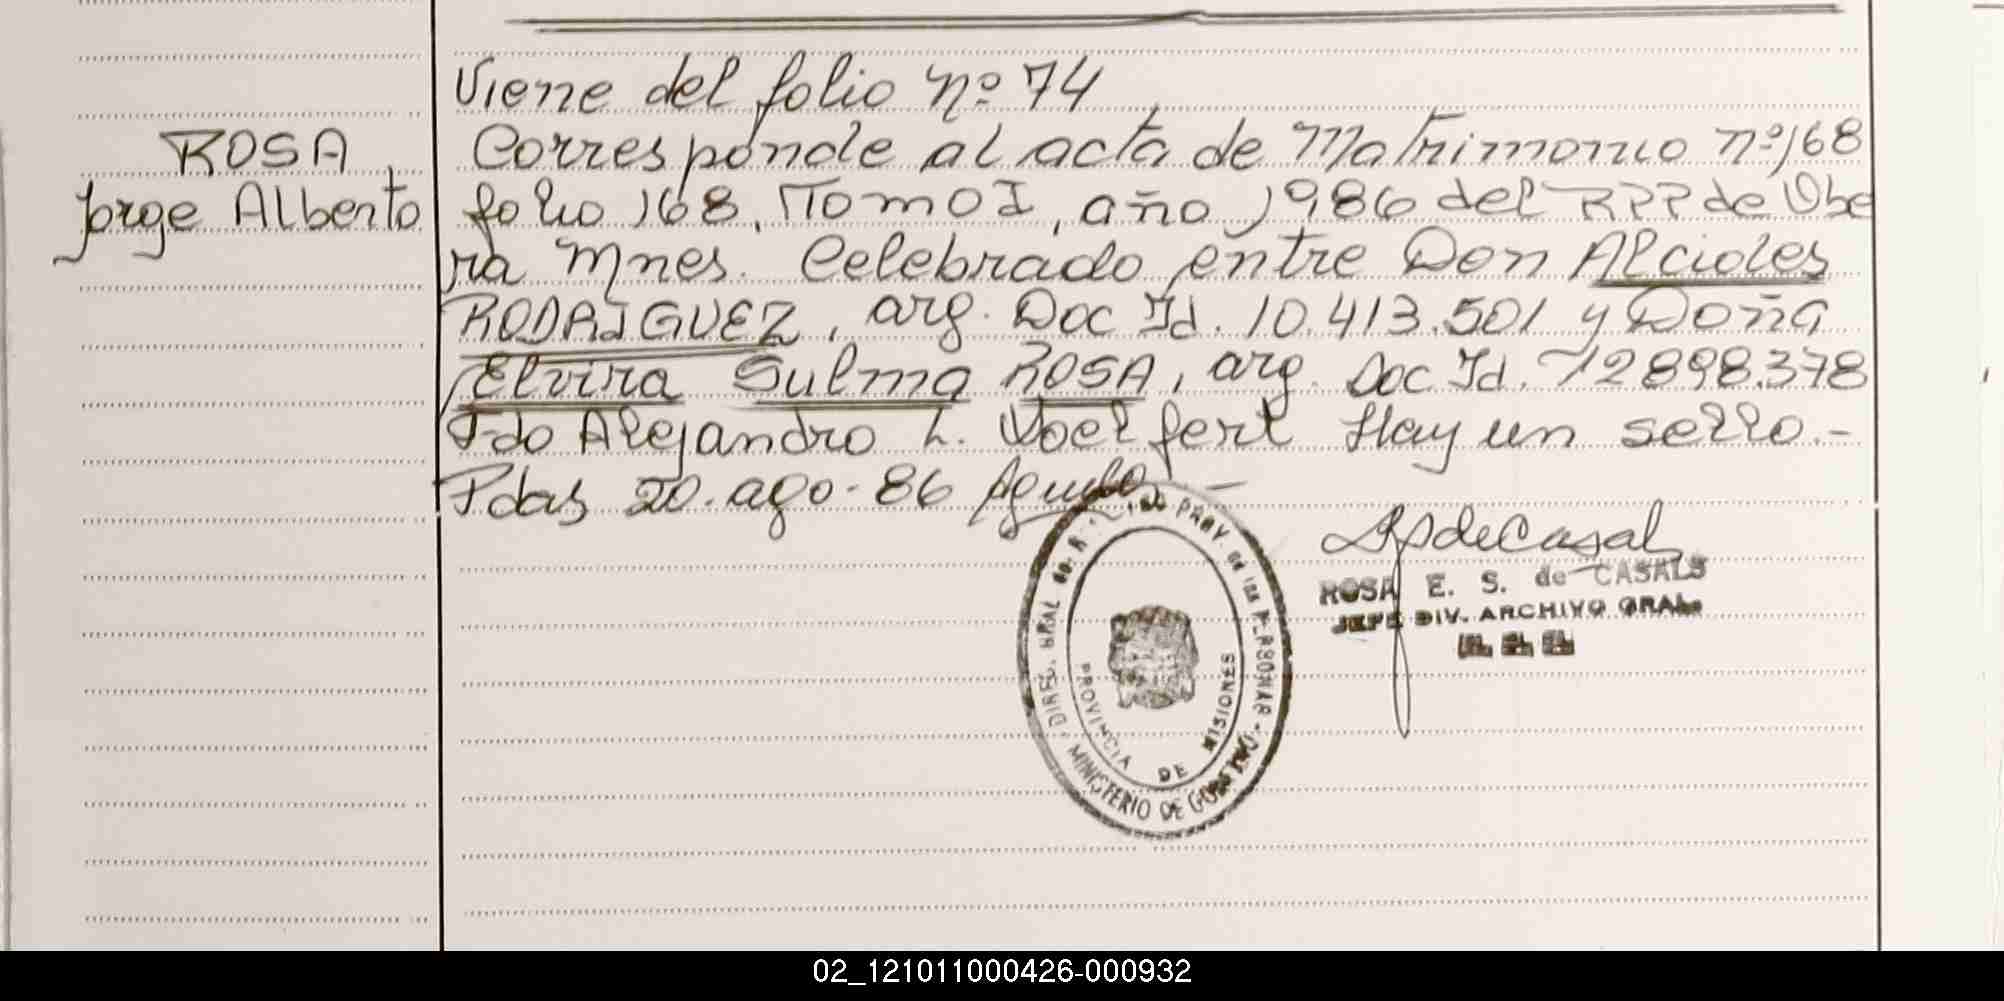 Viene del folio nº 74
ROSA
Jorge Alberto
Corresponde al acta de Matrimonio nº 168
folio 168, Tomo I, año 1986 del RPP de Obe
ra Mnes. Celebrado entre Don Alcides
RODRIGUEZ, arg. Doc Id. 10.413.501 y Doña
Elvira Sulma ROSA, arg. Doc Id. 12898.378
Fdo Alejandro L. Hay un sello.-
Pdas 20-ago-86
DIREC. GRAL de R PROV. de las PERSONAS
MINISTERIO DE GOBIERNO
PROVINCIA DE MISIONES
ROSA E. S. de CASALS
JEFE DIV. ARCHIVO GRAL.
02_121011000426-000932